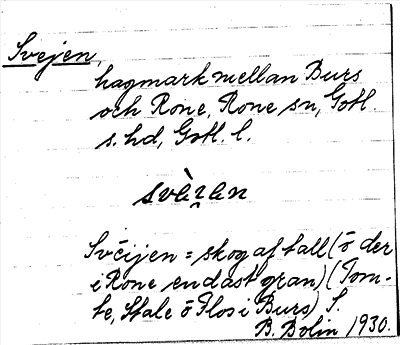 Svejen,
hagmark mellan Burs
och Rone, Rone sn, Gotl.
s. hd, Gotl. l.
Svčijen = skog af tall (ö der
i Rone endast gran) (Tom-
te, Stale ö Flos i Burs) S.
B. Bolin 1930.